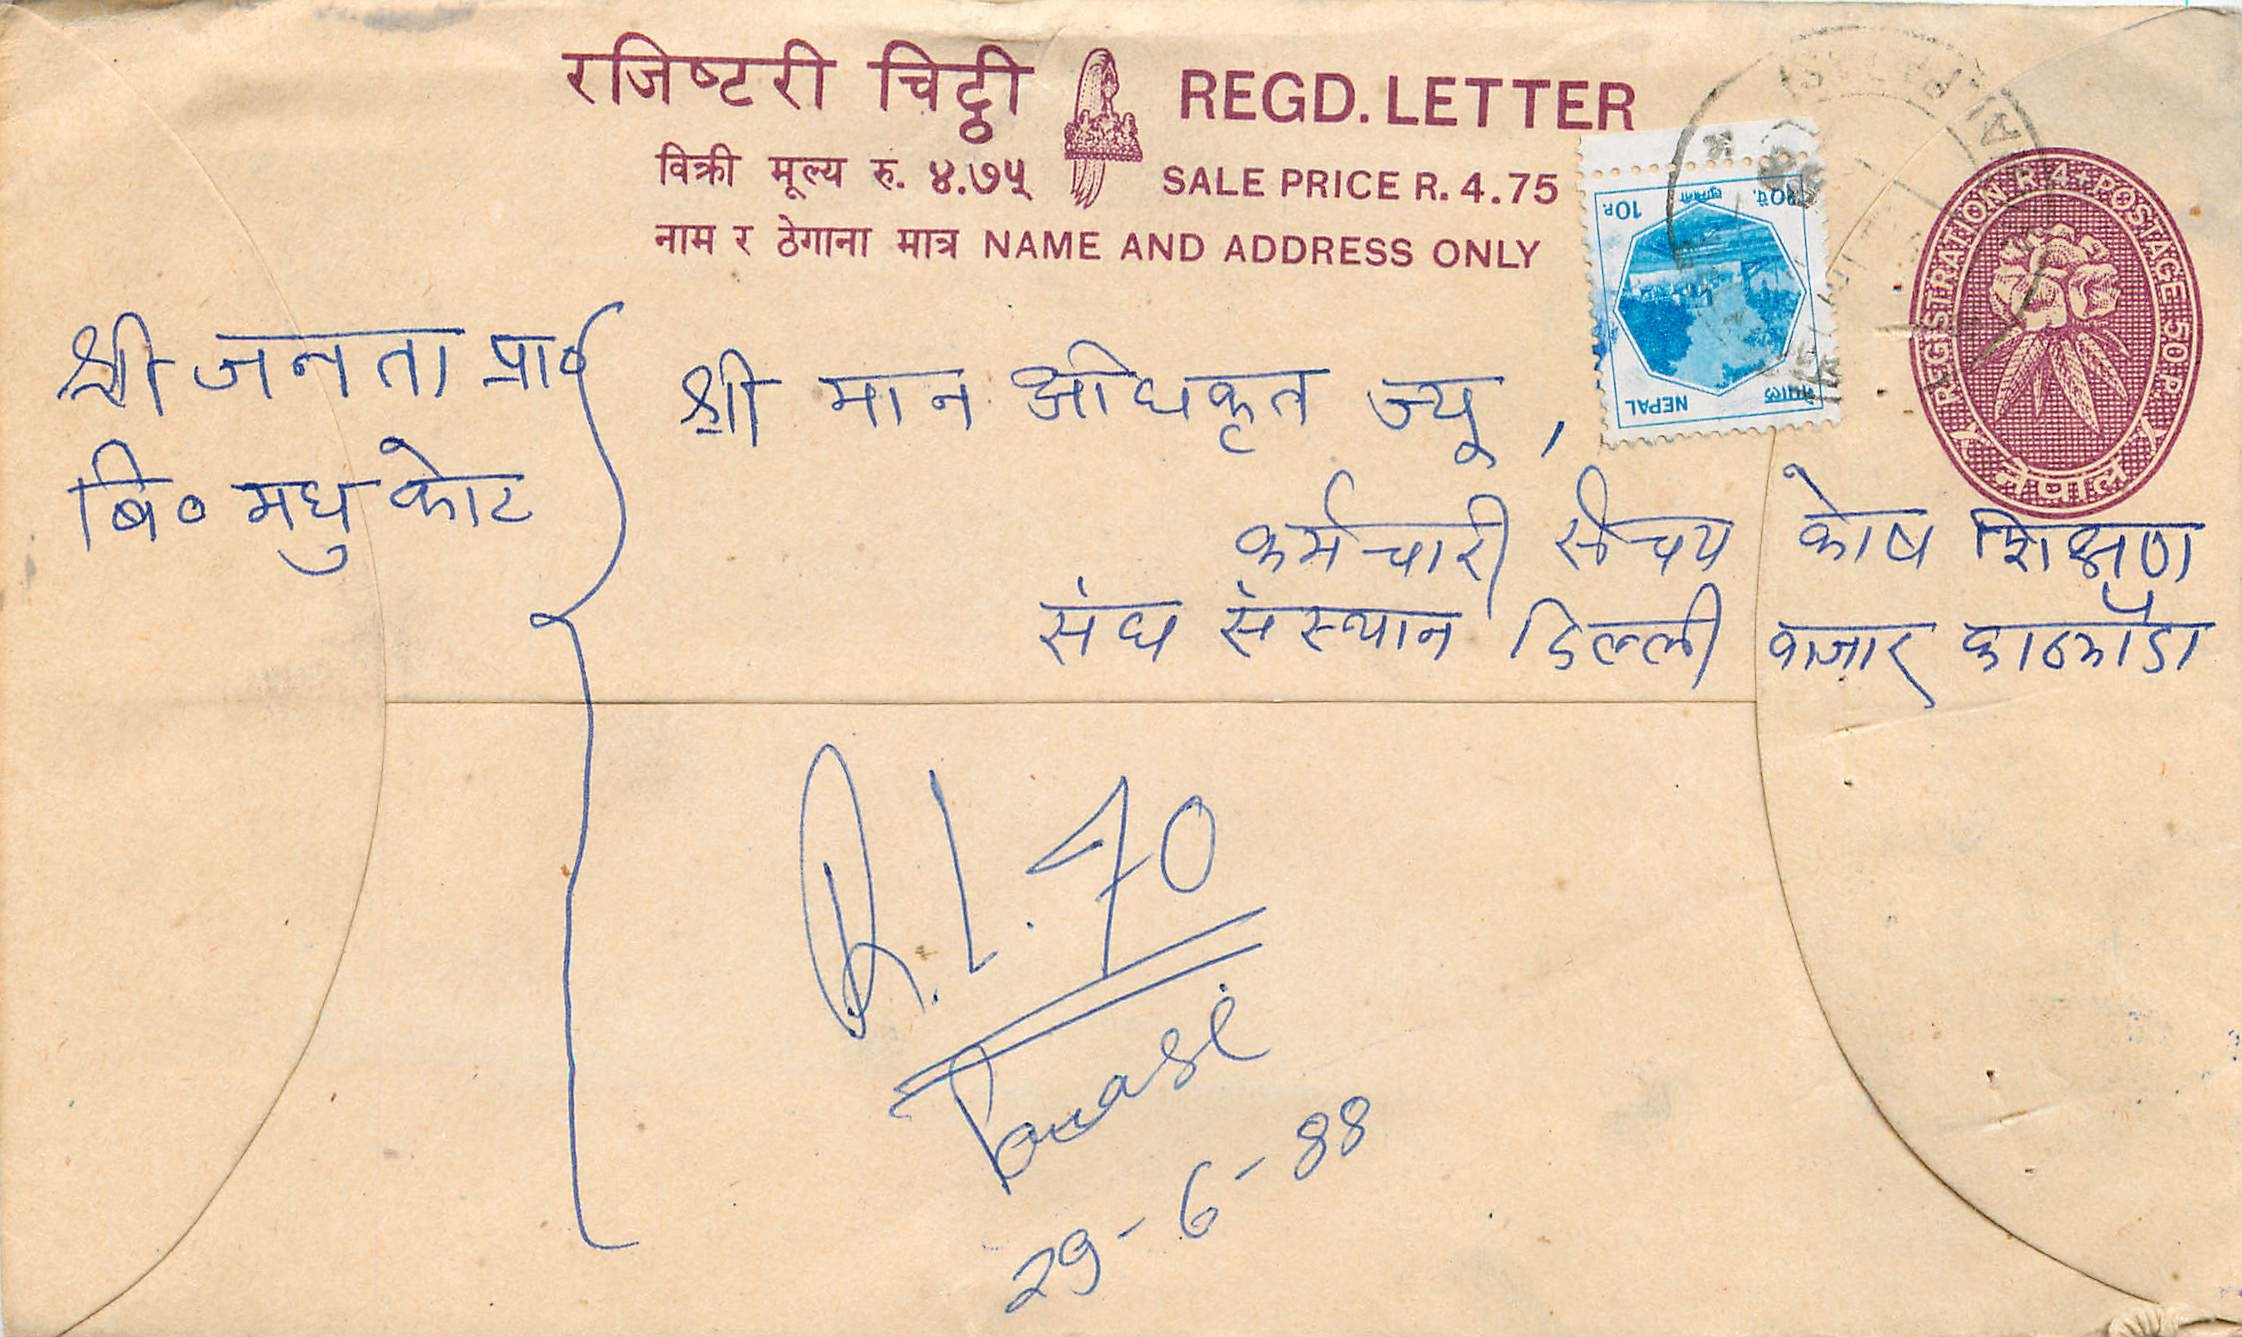 रजिष्टरी चिट्ठी REGD. LETTER
विक्री मूल्य रु. ४.७५ SALE PRICE R. 4.75
नाम र ठेगाना मात्र NAME AND ADDRESS ONLY
REGISTRATION R 4 + POSTAGE 50 P.
नेपाल
१०पै. 10P.
नेपाल NEPAL
श्री जनता प्रा०
बि० मधु कोट
श्री मान अधिकृत ज्यू,
कर्मचारी संचय कोष शिक्षण
संघ संस्थान डिल्ली बजार काठमाँडौ
R.L. 70
29-6-88